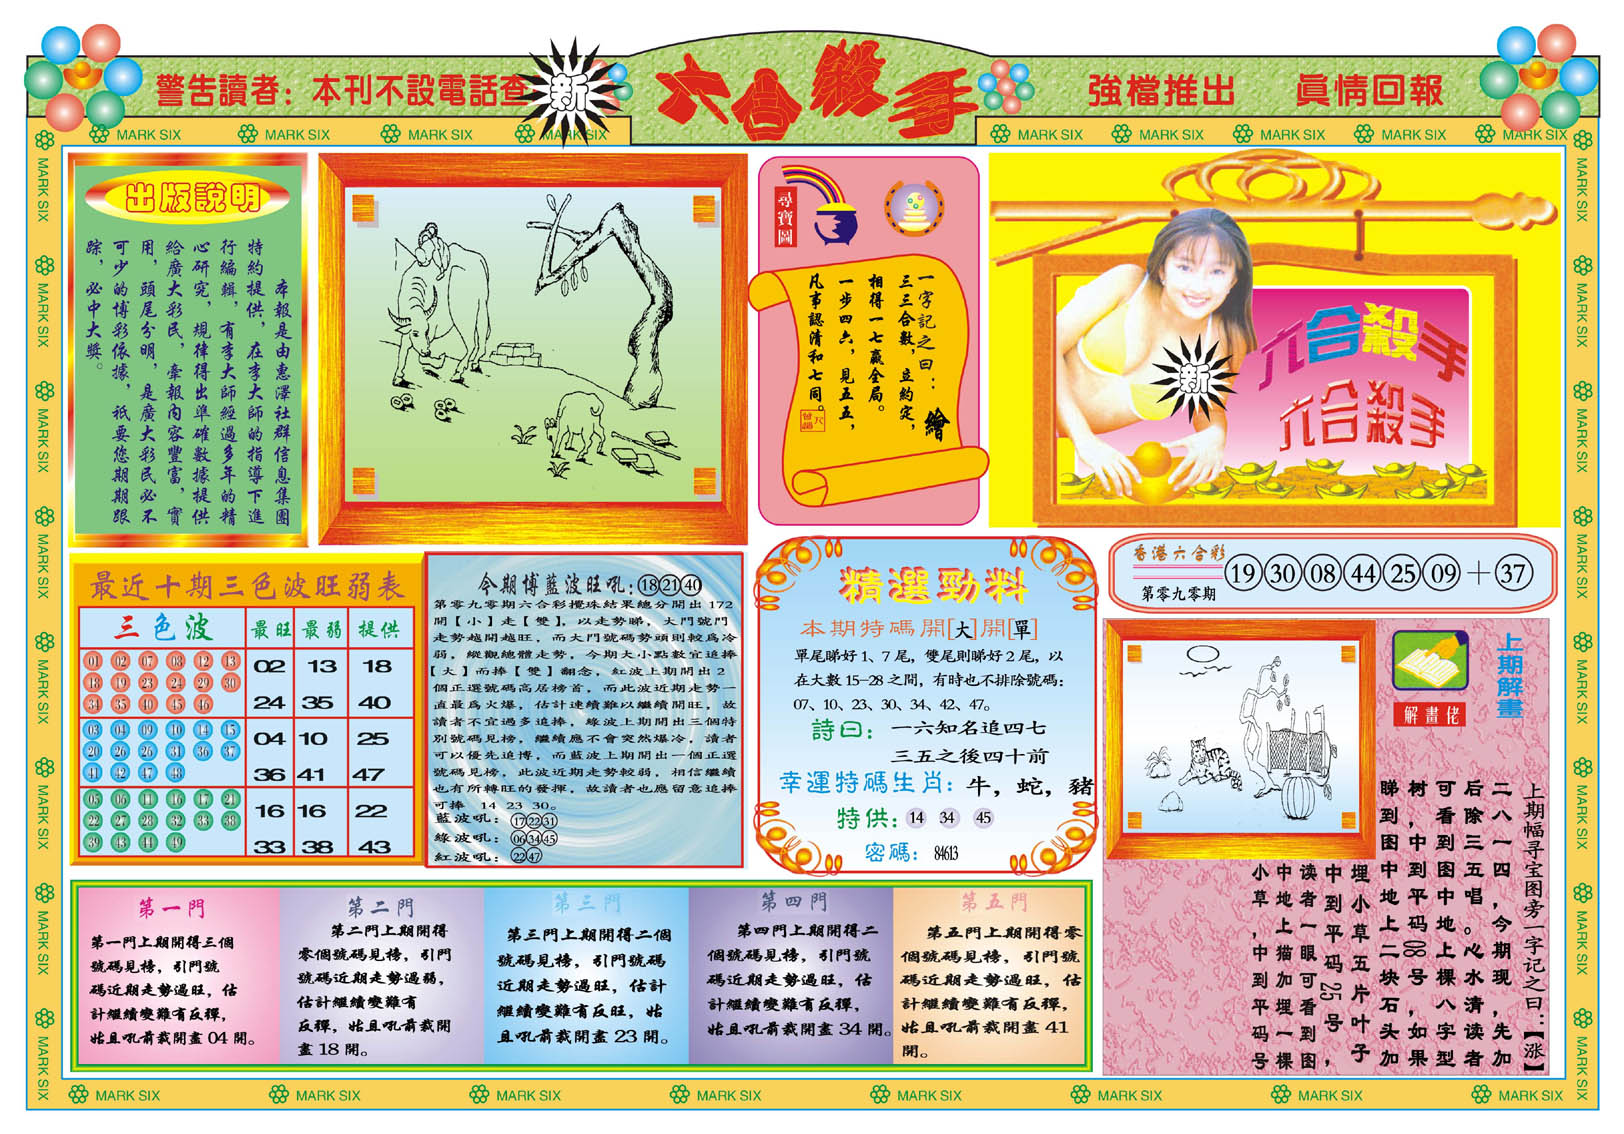 警告讀者：本刊不設電話查
新
六合殺手
強檔推出 眞情回報
MARK SIX MARK SIX MARK SIX MARK SIX
MARK SIX MARK SIX MARK SIX MARK SIX MARK SIX
出版說明
本報是由惠澤社群信息集團
特約提供，在李大師的指導下進
行編輯，有李大師經過多年的精
心研究，規律得出準確數據提供
給廣大彩民，牽報内容豐富，實
用，頭尾分明，是廣大彩民必不
可少的博彩依據，祇要您期期跟
踪，必中大獎。
尋寶圖
一字記之曰：繪
三三合數，立約定，
相得一七贏全局。
一步四六，見五五，
凡事認清和七同。
新
六合殺手
六合殺手
最近十期三色波旺弱表
三色波 最旺 最弱 提供
01 02 07 08 12 13
18 19 23 24 29 30
34 35 40 45 46
02 13 18
24 35 40
03 04 09 10 14 15
20 26 25 31 36 37
41 42 47 48
04 10 25
36 41 47
05 06 11 16 17 21
22 27 28 32 33 38
39 43 44 49
16 16 22
33 38 43
今期博藍波旺吼：18 21 40
第零九零期六合彩攪珠結果總分開出 172
開【小】走【雙】，以走勢睇，大門號門
走勢越開越旺，而大門號碼勢頭則較爲冷
弱，縱觀總體走勢，今期大小點數宜追捧
【大】而捧【雙】翻念，紅波上期開出 2
個正選號碼高居榜首，而此波近期走勢一
直最爲火爆，估計連續難以繼續開旺，故
讀者不宜過多追捧，綠波上期開出三個特
別號碼見榜，繼續應不會突然爆冷，讀者
可以優先追博，而藍波上期開出一個正選
號碼見榜，此波近期走勢較弱，相信繼續
也有所轉旺的發揮，故讀者也應留意追捧
可捧 14 23 30。
藍波吼：17 22 31
綠波吼：06 34 45
紅波吼：22 47
精選勁料
本期特碼開[大]開[單]
單尾睇好 1、7 尾，雙尾則睇好 2 尾，以
在大數 15-28 之間，有時也不排除號碼：
07、10、23、30、34、42、47。
詩曰：一六知名追四七
三五之後四十前
幸運特碼生肖：牛，蛇，豬
特供：14 34 45
密碼：84613
香港六合彩
第零九零期
19 30 08 44 25 09 + 37
上期解畫
解畫佬
上期幅寻宝图旁一字记之曰：【涨】
二八一四，今期现，先加
后除三五唱。心水清读者
可看到图中地上棵八字型
树，中到平码08号，如果
睇到图中地上二块石头加
埋小草五片叶子
中到平码25号，
读者一眼可看到图
中地上猫加埋一棵
小草，中到平码号
第一門
第一門上期開得三個
號碼見榜，引門號
碼近期走勢過旺，估
計繼續變難有反彈，
姑且吼前裁開畫 04 開。
第二門
第二門上期開得
零個號碼見榜，引門
號碼近期走勢過弱，
估計繼續變難有
反彈，姑且吼前裁開
畫 18 開。
第三門
第三門上期開得二個
號碼見榜，引門號碼
近期走勢過旺，估計
繼續變難有反旺，姑
且吼前裁開畫 23 開。
第四門
第四門上期開得二
個號碼見榜，引門號
碼近期走勢過旺，估
計繼續變難有反彈，
姑且吼前裁開畫 34 開。
第五門
第五門上期開得零
個號碼見榜，引門號
碼近期走勢過旺，估
計繼續變難有反彈，
姑且吼前裁開畫 41
開。
MARK SIX MARK SIX MARK SIX MARK SIX MARK SIX MARK SIX MARK SIX MARK SIX
MARK SIX MARK SIX MARK SIX MARK SIX MARK SIX MARK SIX MARK SIX MARK SIX
MARK SIX MARK SIX MARK SIX MARK SIX MARK SIX MARK SIX MARK SIX MARK SIX